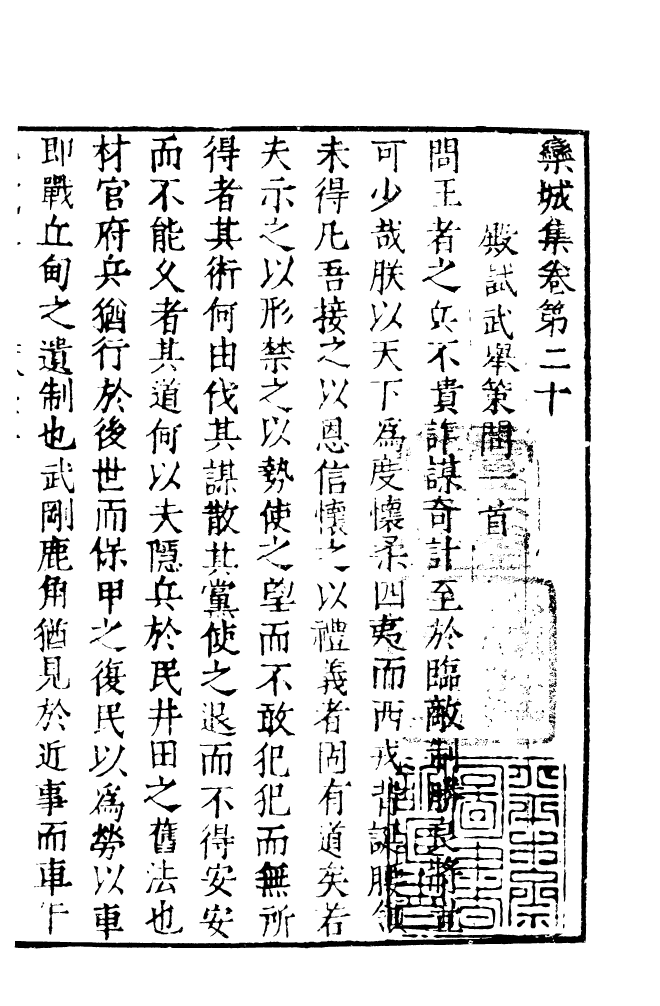 欒城集卷第二十
殿試武舉策問一首
問王者之兵不貴詐謀奇計至於臨敵制勝良將豈
可少哉朕以天下為度懷柔四夷而西戎背誕腰領
未得凡吾接之以恩信懷之以禮義者固有道矣若
夫示之以形禁之以勢使之望而不敢犯犯而無所
得者其術何由伐其謀散其黨使之退而不得安安
而不能久者其道何以夫隱兵於民井田之舊法也
材官府兵猶行於後世而保甲之復民以為勞以車
即戰丘甸之遺制也武剛鹿角猶見於近事而車牛